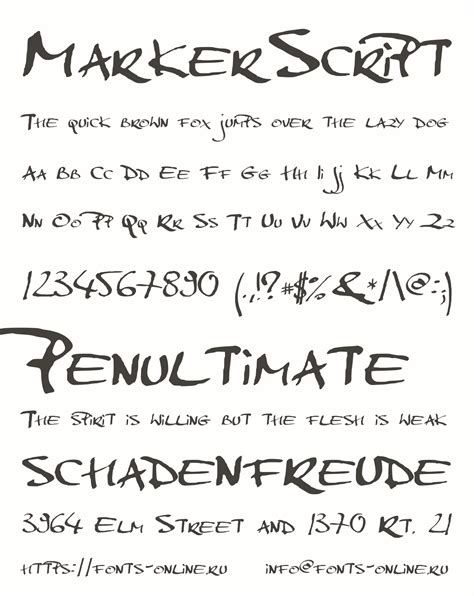 MarkerScript
The quick brown fox jumps over the lazy dog
Aa Bb Cc Dd Ee Ff Gg Hh Ii Jj Kk Ll Mm
Nn Oo Pp Qq Rr Ss Tt Uu Vv Ww Xx Yy Zz
1234567890 (.,!?#$%&*/\@:;)
Penultimate
The spirit is willing but the flesh is weak
SCHADENFREUDE
3964 Elm Street and 1370 Rt. 21
https://fonts-online.ru info@fonts-online.ru